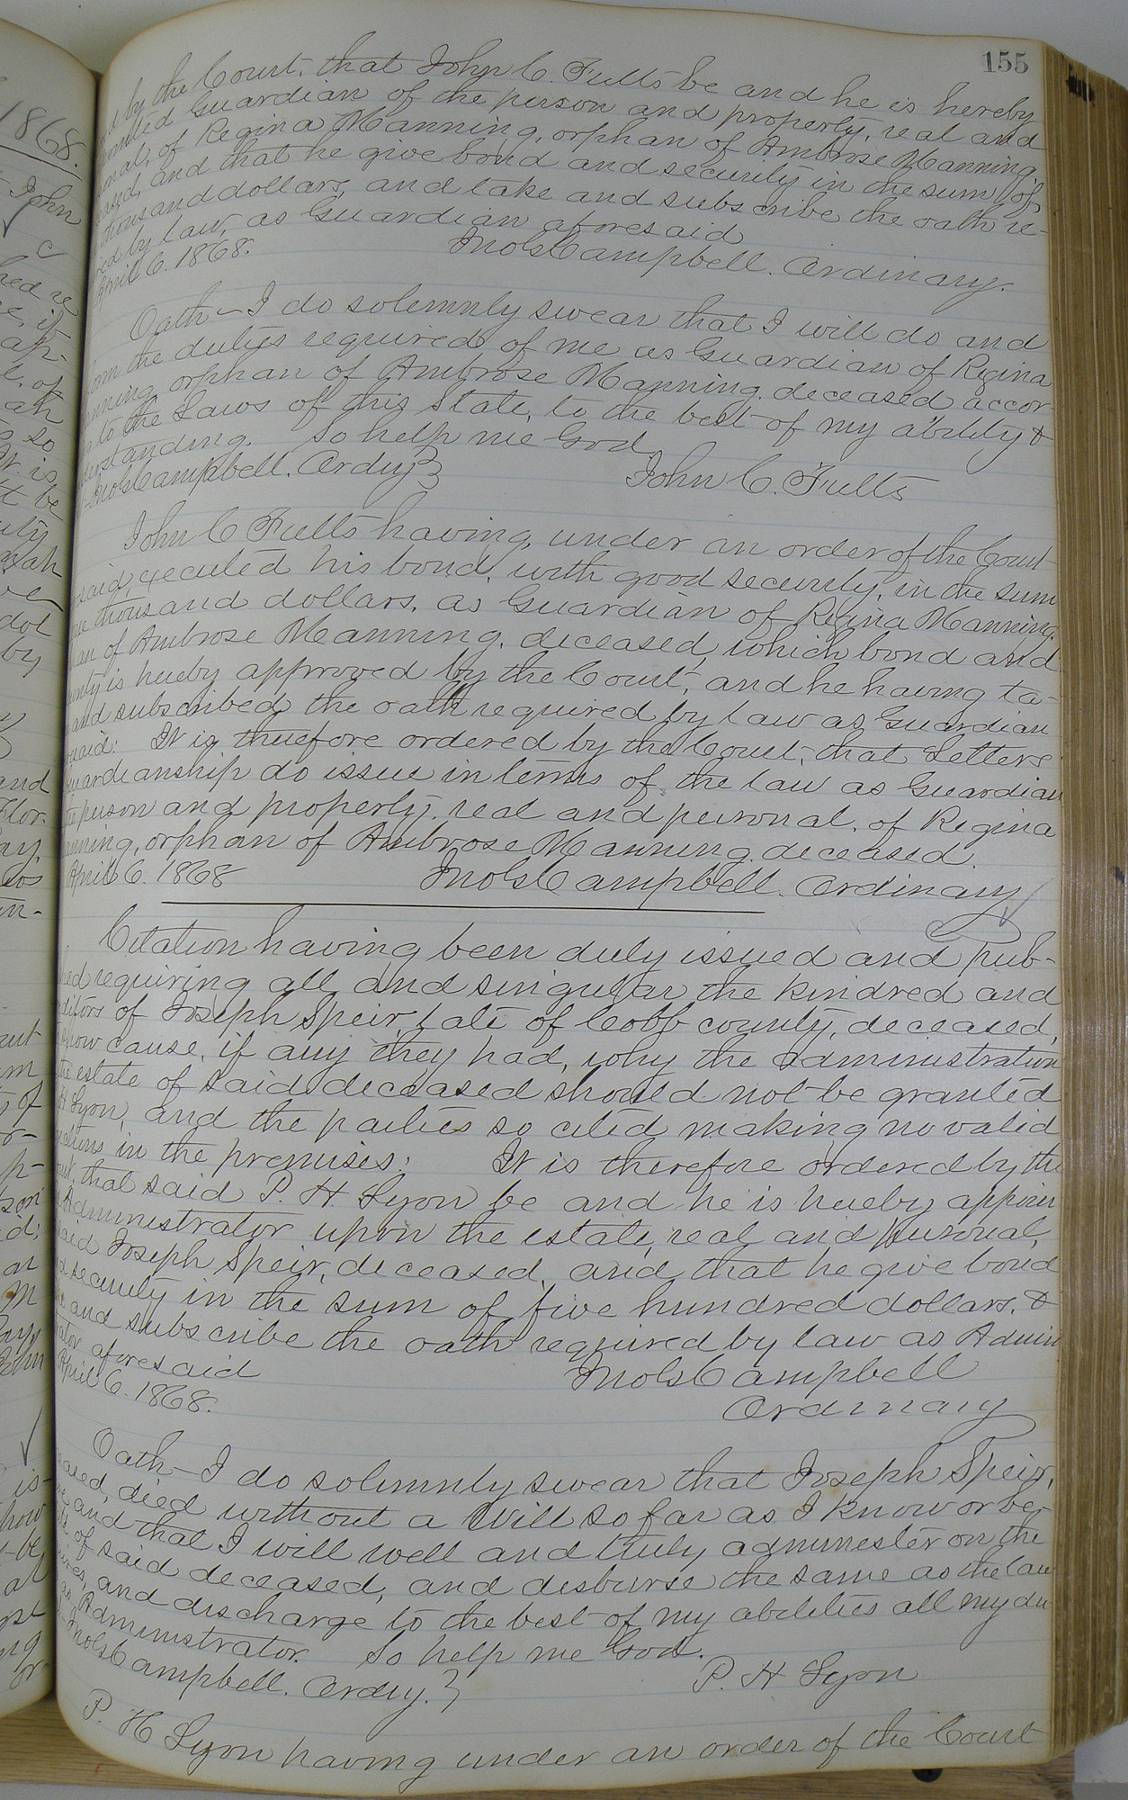 155
by the Court, that John C. Fults be and he is hereby
Guardian of the person and property, real and
of Regina Manning, orphan of Ambrose Manning,
and that he give bond and security in the sum of
thousand dollars, and take and subscribe the oath re-
by law, as Guardian aforesaid
April 6. 1868. Jno. S. Campbell. Ordinary.
Oath - I do solemnly swear that I will do and
the duties required of me as Guardian of Regina
Manning orphan of Ambrose Manning. deceased accor-
to the Laws of this State, to the best of my ability &
understanding. So help me God.
Jno. S. Campbell. Ordny } John C. Fults
John C Fults having, under an order of the Court
said, executed his bond, with good security, in the sum
thousand dollars, as Guardian of Regina Manning
of Ambrose Manning, deceased, which bond and
is hereby approved by the Court, and he having ta-
and subscribed the oath required by law as Guardian
said: It is therefore ordered by the Court, that Letters
Guardianship do issue in terms of the law as Guardian
person and property, real and personal, of Regina
Manning, orphan of Ambrose Manning deceased.
April 6. 1868 Jno. S. Campbell. Ordinary
Citation having been duly issued and pub-
requiring all and singular the kindred and
of Joseph Speir, late of Cobb county, deceased,
show cause, if any they had, why the administration
estate of said deceased should not be granted
Lyon, and the parties so cited making no valid
in the premises: It is therefore ordered by the
that said P. H. Lyon be and he is hereby appoin
Administrator upon the estate, real and personal,
said Joseph Speir, deceased, and that he give bond
security in the sum of five hundred dollars, &
and subscribe the oath required by law as Admin
aforesaid
April 6. 1868. Jno. S. Campbell
Ordinary
Oath - I do solemnly swear that Joseph Speir,
died without a Will so far as I know or be-
and that I will well and truly administer on the
of said deceased, and disburse the same as the law
and discharge to the best of my abilities all my du
as Administrator. So help me God.
Jno. S. Campbell. Ordny. } P. H Lyon
P. H Lyon having under an order of the Court